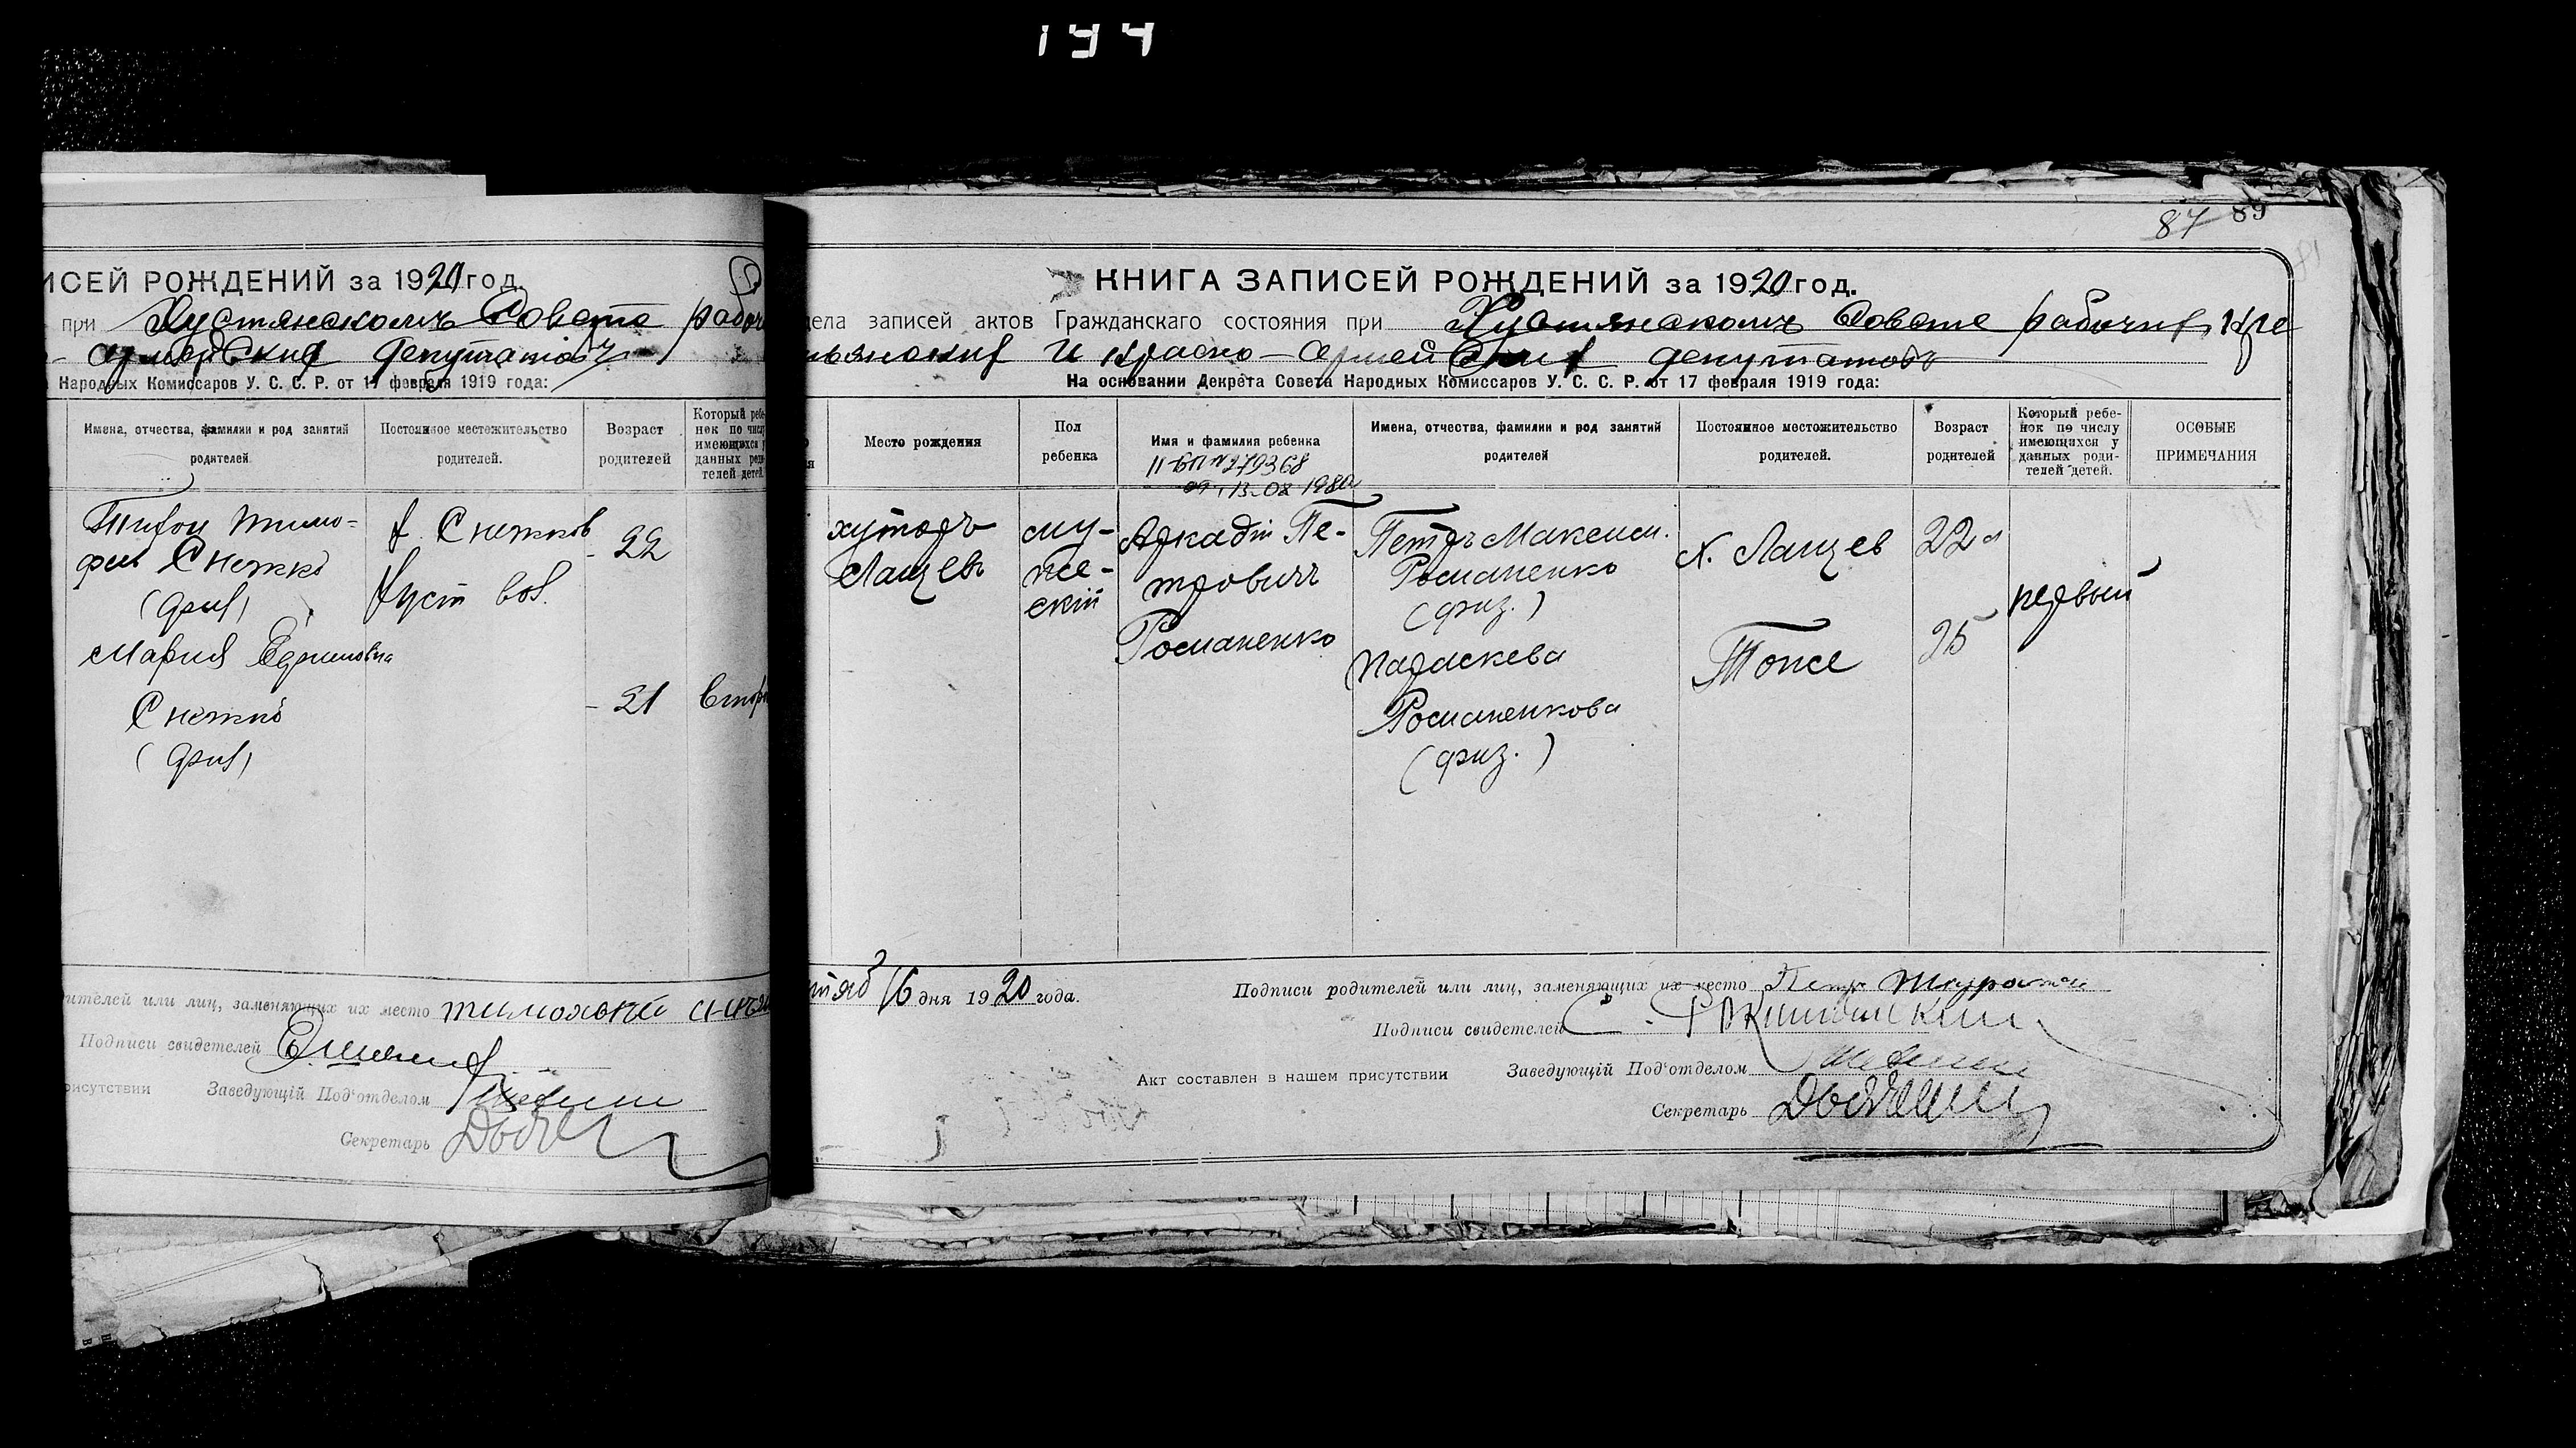 144
ИСЕЙ РОЖДЕНИЙ за 1920 год.
при Хустянскомъ Совете рабоч
армейских депутатовъ
Народных Комиссаров У. С. С. Р. от 17 февраля 1919 года:
Имена, отчества, фамилии и род занятий родителей.
Постоянное местожительство родителей.
Возраст родителей
Который ребенок по числу имеющихся у данных родителей детей.
Тимо-
фей Снежко
х. Снежков
22
Хуст вол.
Мария Ефимовна
Снежко
21
Втор
ителей или лиц, заменяющих их место
Подписи свидетелей
рисутствии Заведующій Под'отделом
Секретарь
87 89
КНИГА ЗАПИСЕЙ РОЖДЕНИЙ за 1920 год.
дела записей актов Гражданскаго состояния при Хустянскомъ Совете рабочих, кре
тьянских и красно-армейских депутатовъ
На основании Декрета Совета Народных Комиссаров У. С. С. Р. от 17 февраля 1919 года:
Место рождения
Пол ребенка
Имя и фамилия ребенка
II-БП №279368
от 13-08 1980
Имена, отчества, фамилии и род занятий родителей
Постоянное местожительство родителей.
Возраст родителей
Который ребенок по числу имеющихся у данных родителей детей.
ОСОБЫЕ ПРИМЕЧАНИЯ
хуторъ
Лащев
му-
же-
скій
Аркадій Пе-
тровичъ
Романенко
Петръ Максим.
Романенко
(физ.)
Параскева
Романенкова
(физ.)
х. Лащев
Тоже
22
25
первый
тяб 16 дня 1920 года.
Подписи родителей или лиц, заменяющих их место
Подписи свидетелей
Акт составлен в нашем присутствии Заведующій Под'отделом
Секретарь